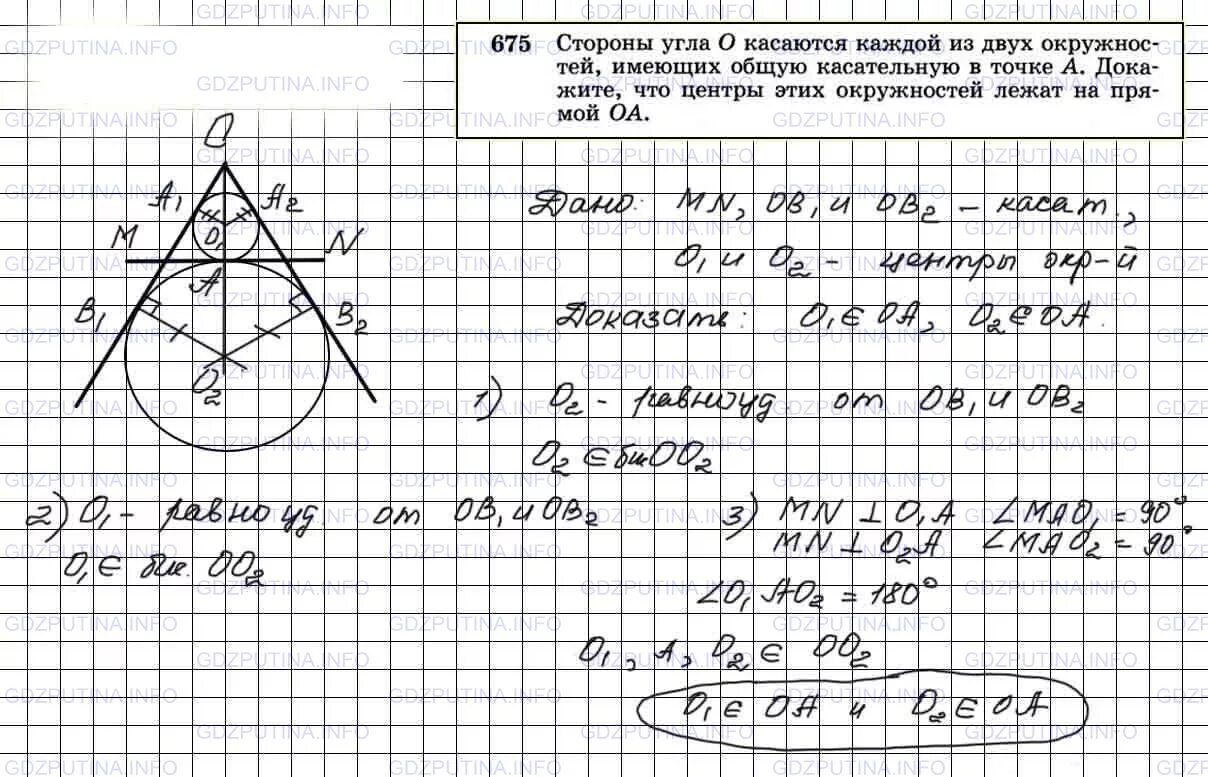 675 Стороны угла O касаются каждой из двух окружнос-
тей, имеющих общую касательную в точке A. Дока-
жите, что центры этих окружностей лежат на пря-
мой OA.
O
A₁ A₂
O₁
M N
A
B₁ B₂
O₂
Дано: MN, OB₁ и OB₂ – касат.,
O₁ и O₂ – центры окр-й
Доказать: O₁ ∈ OA, O₂ ∈ OA.
1) O₂ – равноуд. от OB₁ и OB₂
O₂ ∈ бис OO₂
2) O₁ – равноуд. от OB₁ и OB₂
O₁ ∈ бис. OO₂
3) MN ⊥ O₁A ∠MAO₁ = 90°,
MN ⊥ O₂A ∠MAO₂ = 90°
∠O₁AO₂ = 180°
O₁, A, O₂ ∈ OO₂
O₁ ∈ OA и O₂ ∈ OA
GDZPUTINA.INFO